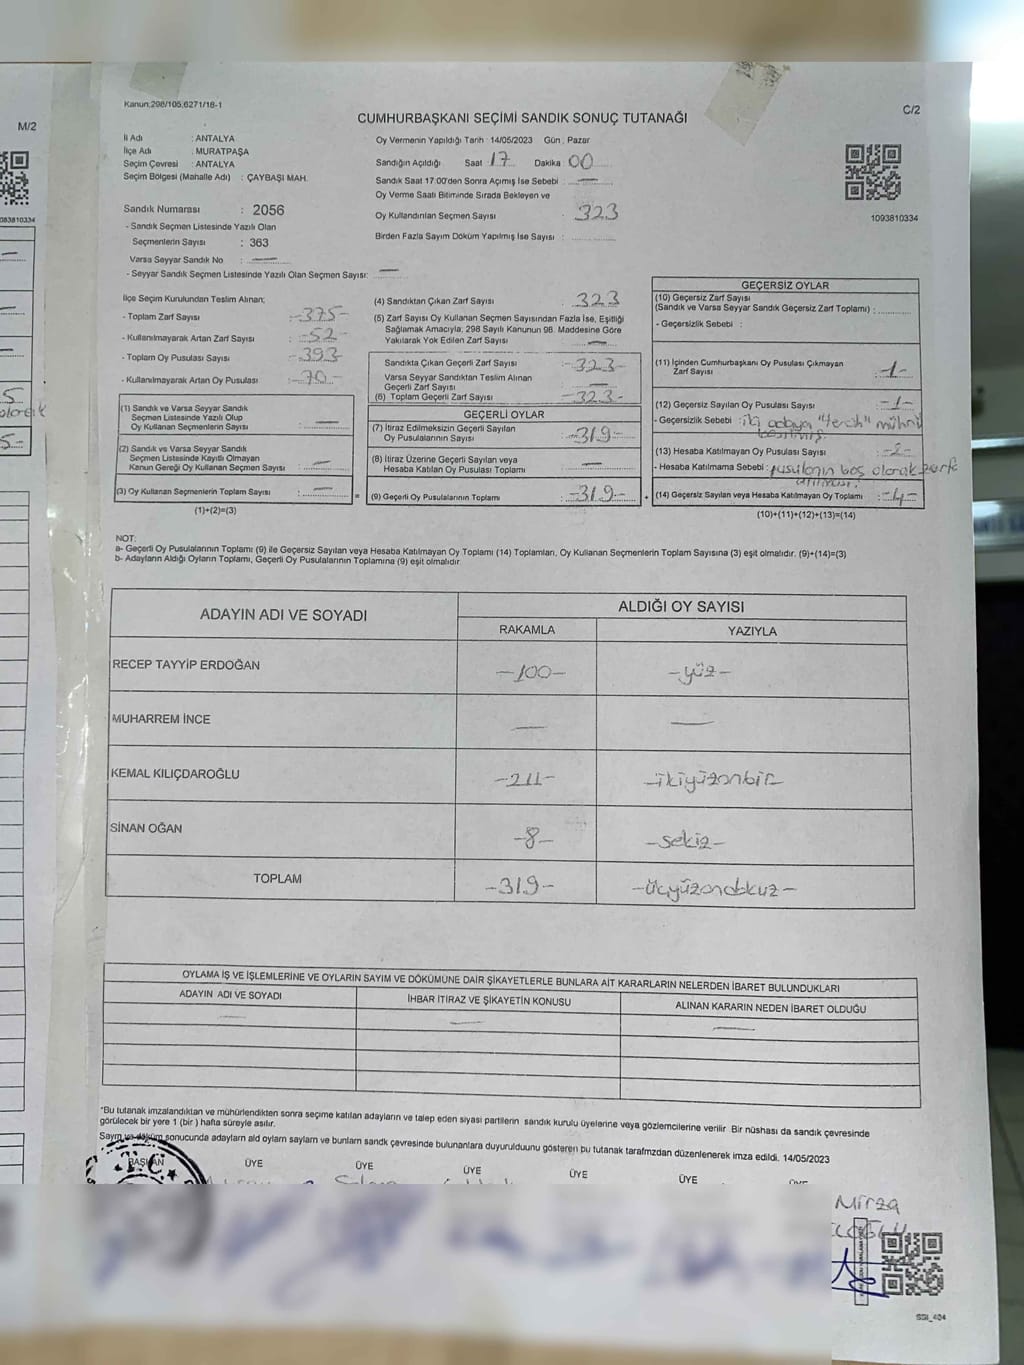 M/2
093810334
Kanun;298/105,6271/18-1
C/2
CUMHURBAŞKANI SEÇİMİ SANDIK SONUÇ TUTANAĞI
İl Adı : ANTALYA
İlçe Adı : MURATPAŞA
Seçim Çevresi : ANTALYA
Seçim Bölgesi (Mahalle Adı) : ÇAYBAŞI MAH.
Oy Vermenin Yapıldığı Tarih : 14/05/2023 Gün : Pazar
Sandığın Açıldığı Saat 17 Dakika 00
Sandık Saat 17:00'den Sonra Açımış İse Sebebi : —
Oy Verme Saati Bitiminde Sırada Bekleyen ve
Oy Kullandırılan Seçmen Sayısı : 323
Birden Fazla Sayım Döküm Yapılmış İse Sayısı :
1093810334
Sandık Numarası : 2056
- Sandık Seçmen Listesinde Yazılı Olan
Seçmenlerin Sayısı : 363
Varsa Seyyar Sandık No : —
- Seyyar Sandık Seçmen Listesinde Yazılı Olan Seçmen Sayısı: —
İlçe Seçim Kurulundan Teslim Alınan;
- Toplam Zarf Sayısı : -375-
- Kullanılmayarak Artan Zarf Sayısı : -52-
- Toplam Oy Pusulası Sayısı : -393-
- Kullanılmayarak Artan Oy Pusulası : -70-
(1) Sandık ve Varsa Seyyar Sandık
Seçmen Listesinde Yazılı Olup
Oy Kullanan Seçmenlerin Sayısı : —
(2) Sandık ve Varsa Seyyar Sandık
Seçmen Listesinde Kayıtlı Olmayan
Kanun Gereği Oy Kullanan Seçmen Sayısı : —
(3) Oy Kullanan Seçmenlerin Toplam Sayısı : —
(1)+(2)=(3)
(4) Sandıktan Çıkan Zarf Sayısı : 323
(5) Zarf Sayısı Oy Kullanan Seçmen Sayısından Fazla İse, Eşitliği
Sağlamak Amacıyla; 298 Sayılı Kanunun 98. Maddesine Göre
Yakılarak Yok Edilen Zarf Sayısı : —
Sandıkta Çıkan Geçerli Zarf Sayısı : -323-
Varsa Seyyar Sandıktan Teslim Alınan
Geçerli Zarf Sayısı : —
(6) Toplam Geçerli Zarf Sayısı : -323-
GEÇERLİ OYLAR
(7) İtiraz Edilmeksizin Geçerli Sayılan
Oy Pusulalarının Sayısı : -319-
(8) İtiraz Üzerine Geçerli Sayılan veya
Hesaba Katılan Oy Pusulası Toplamı : —
= (9) Geçerli Oy Pusulalarının Toplamı : -319- +
GEÇERSİZ OYLAR
(10) Geçersiz Zarf Sayısı
(Sandık ve Varsa Seyyar Sandık Geçersiz Zarf Toplamı) :
- Geçersizlik Sebebi :
(11) İçinden Cumhurbaşkanı Oy Pusulası Çıkmayan
Zarf Sayısı : -1-
(12) Geçersiz Sayılan Oy Pusulası Sayısı : -1-
- Geçersizlik Sebebi : iki adaya "tercih" mührü
basılmış.
(13) Hesaba Katılmayan Oy Pusulası Sayısı : -2-
- Hesaba Katılmama Sebebi : pusulanın boş olarak zarfa
atılması.
(14) Geçersiz Sayılan veya Hesaba Katılmayan Oy Toplamı : -4-
(10)+(11)+(12)+(13)=(14)
NOT:
a- Geçerli Oy Pusulalarının Toplamı (9) ile Geçersiz Sayılan veya Hesaba Katılmayan Oy Toplamı (14) Toplamları, Oy Kullanan Seçmenlerin Toplam Sayısına (3) eşit olmalıdır. (9)+(14)=(3)
b- Adayların Aldığı Oyların Toplamı, Geçerli Oy Pusulalarının Toplamına (9) eşit olmalıdır
ADAYIN ADI VE SOYADI ALDIĞI OY SAYISI
RAKAMLA YAZIYLA
RECEP TAYYİP ERDOĞAN -100- -yüz-
MUHARREM İNCE — —
KEMAL KILIÇDAROĞLU -211- -ikiyüzonbir-
SİNAN OĞAN -8- -sekiz-
TOPLAM -319- -üçyüzondokuz-
OYLAMA İŞ VE İŞLEMLERİNE VE OYLARIN SAYIM VE DÖKÜMÜNE DAİR ŞİKAYETLERLE BUNLARA AİT KARARLARIN NELERDEN İBARET BULUNDUKLARI
ADAYIN ADI VE SOYADI İHBAR İTİRAZ VE ŞİKAYETİN KONUSU ALINAN KARARIN NEDEN İBARET OLDUĞU
— — —
*Bu tutanak imzalandıktan ve mühürlendikten sonra seçime katılan adayların ve talep eden siyasi partilerin sandık kurulu üyelerine veya gözlemcilerine verilir Bir nüshası da sandık çevresinde
görülecek bir yere 1 (bir ) hafta süreyle asılır.
Sayım ve döküm sonucunda adayların ald oyların sayların ve bunların sandk çevresinde bulunanlara duyurulduunu gösteren bu tutanak tarafmzdan düzenlenerek imza edildi. 14/05/2023
BAŞKAN ÜYE ÜYE ÜYE ÜYE ÜYE ÜYE
T.C.
Mirza
SSI_404